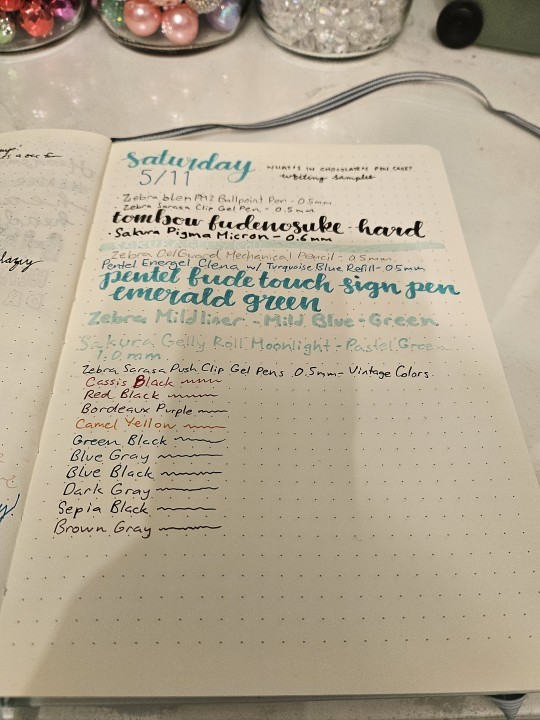 Saturday
5/11
WHAT'S IN CHOCOLATE'S PEN CASE?
writing samples
Zebra blen Ballpoint Pen - 0.5mm
Zebra Sarasa Clip Gel Pen - 0.5mm
tombow fudenosuke - hard
Sakura Pigma Micron - 0.6mm
Zebra DelGuard Mechanical Pencil - 0.5mm
Pentel Energel Clena w/ Turquoise Blue Refill - 0.5mm
pentel fude touch sign pen
emerald green
Zebra Mildliner - Mild Blue-Green
Sakura Gelly Roll Moonlight - Pastel Green
1.0mm
Zebra Sarasa Push Clip Gel Pens 0.5mm - Vintage Colors.
Cassis Black
Red Black
Bordeaux Purple
Camel Yellow
Green Black
Blue Gray
Blue Black
Dark Gray
Sepia Black
Brown Gray